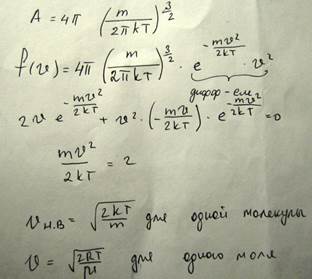 A = 4π (m / 2πkT)^{3/2}
f(v) = 4π (m / 2πkT)^{3/2} · e^{-mv²/2kT} · v²
дифф-ем
2v e^{-mv²/2kT} + v² · (-mv/2kT) · e^{-mv²/2kT} = 0
mv²/2kT = 2
v_{н.в} = √(2kT/m) для одной молекулы
v = √(2RT/μ) для одного моля